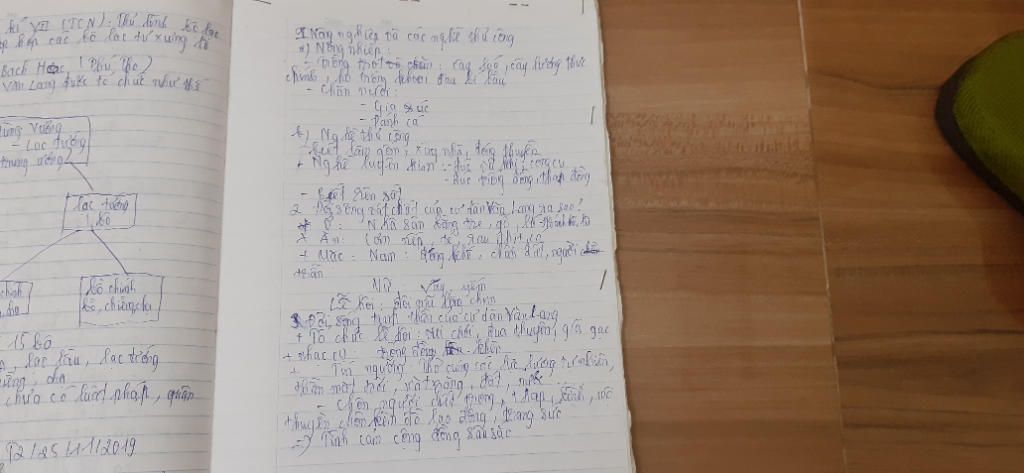 kỉ VII (TCN): Thủ lĩnh bộ lạc
hợp các bộ lạc tự xưng là
Bạch Hạc, (Phú Thọ)
Văn Lang được tổ chức như thế
Hùng Vương
- Lạc tướng
trung ương
lạc tướng
1 bộ
bồ chính
bồ, chiềng, chạ
15 bộ
lạc hầu, lạc tướng
chưa có luật pháp, quân
T2/25/11/2019
Nông nghiệp và các nghề thủ công
a) Nông nghiệp:
- Trồng trọt: cây lúa, cây lương thực
chính, họ trồng khoai đậu bí bầu
- Chăn nuôi:
- Gia súc
- Đánh cá
b) Nghề thủ công
- Biết làm gốm, xây nhà, đóng thuyền
+ Nghề luyện kim: đúc vũ khí, công cụ
- đúc trống đồng, tháp đồng
- Biết rèn sắt
2. Đời sống vật chất của cư dân Văn Lang ra sao?
+ Ở: Nhà sàn bằng tre, gỗ, lá
+ Ăn: Cơm nếp, tẻ, rau, thịt, cá
+ Mặc: Nam: đóng khố, chân đất, người
trần
Nữ váy, yếm
Lễ hội: đội mũ lông chim
3. Đời sống tinh thần của cư dân Văn Lang
+ Tổ chức lễ hội: vui chơi, đua thuyền, giã gạo
+ nhạc cụ: trống đồng, khèn
+ Tín ngưỡng: Thờ cúng các lực lượng tự nhiên,
thần mặt trời, mặt trăng, đất, nước
- Chôn người chết trong thạp, bình, mộ
thuyền chôn kèm đồ lao động, trang sức
=> Tình cảm cộng đồng sâu sắc